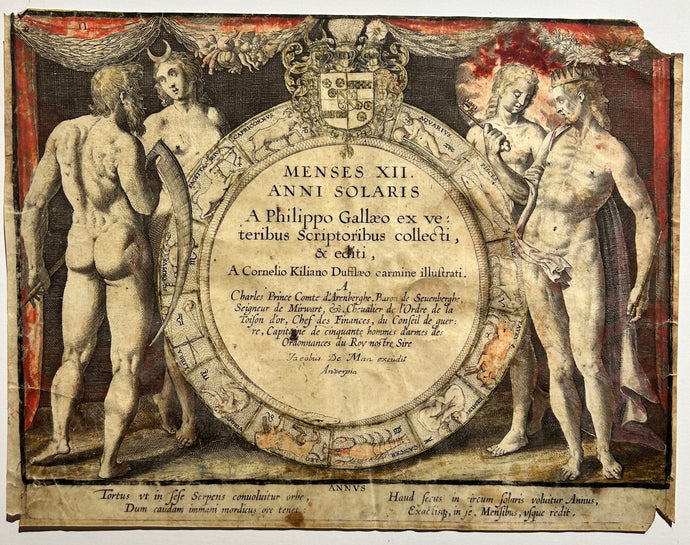 MENSES XII.
ANNI SOLARIS
A Philippo Gallæo ex ve:
teribus Scriptoribus collecti,
& editi,
A Cornelio Kiliano Dufflæo carmine illustrati.
A
Charles Prince Comte d'Arenberghe, Baron de Seuenberghe,
Seigneur de Mirwart, &c, Cheualier de l'Ordre de la
Toison d'or, Chef des Finances, du Conseil de guer:
re, Capitaine de cinquante hommes d'armes des
Ordonnances du Roy nostre Sire
Jacobus De Man excudit
Antverpiæ
CAPRICORNUS
AQUARIUS
SAGITTARIUS
LIBRA
VIRGO
LEO
CANCER
ANNVS
Tortus vt in sese Serpens conuoluitur orbe,
Dum caudam immani mordicus ore tenet:
Haud secus in circum solaris voluitur Annus,
Exactisq, in se, Mensibus, vsque redit.